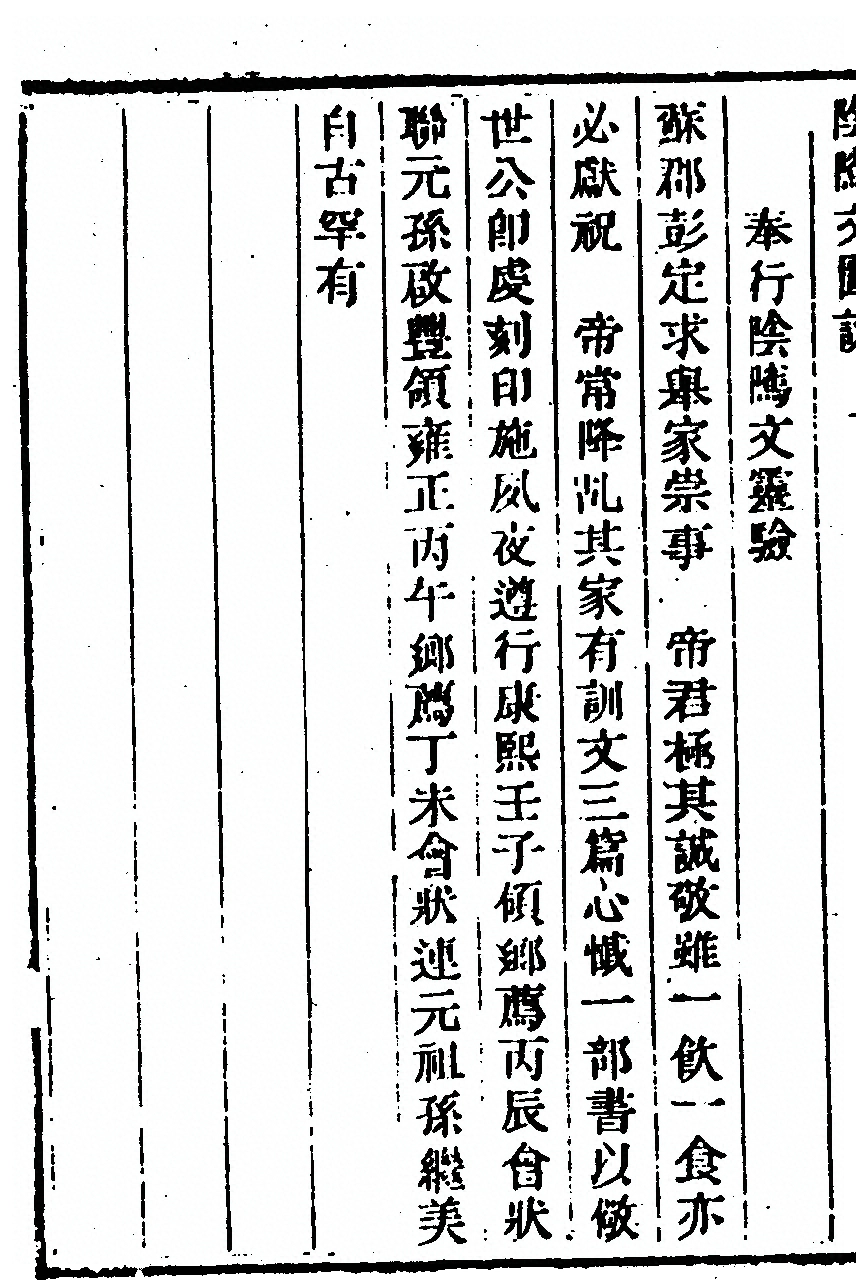 陰隲文圖說
奉行陰隲文靈驗
蘇郡彭定求舉家崇事　帝君極其誠敬雖一飲一食亦
必獻祝　帝常降乩其家有訓文三篇心懺一部書以儆
世公即虔刻印施夙夜遵行康熙壬子傾鄉薦丙辰會狀
聯元孫啟豐領雍正丙午鄉薦丁未會狀連元祖孫繼美
自古罕有